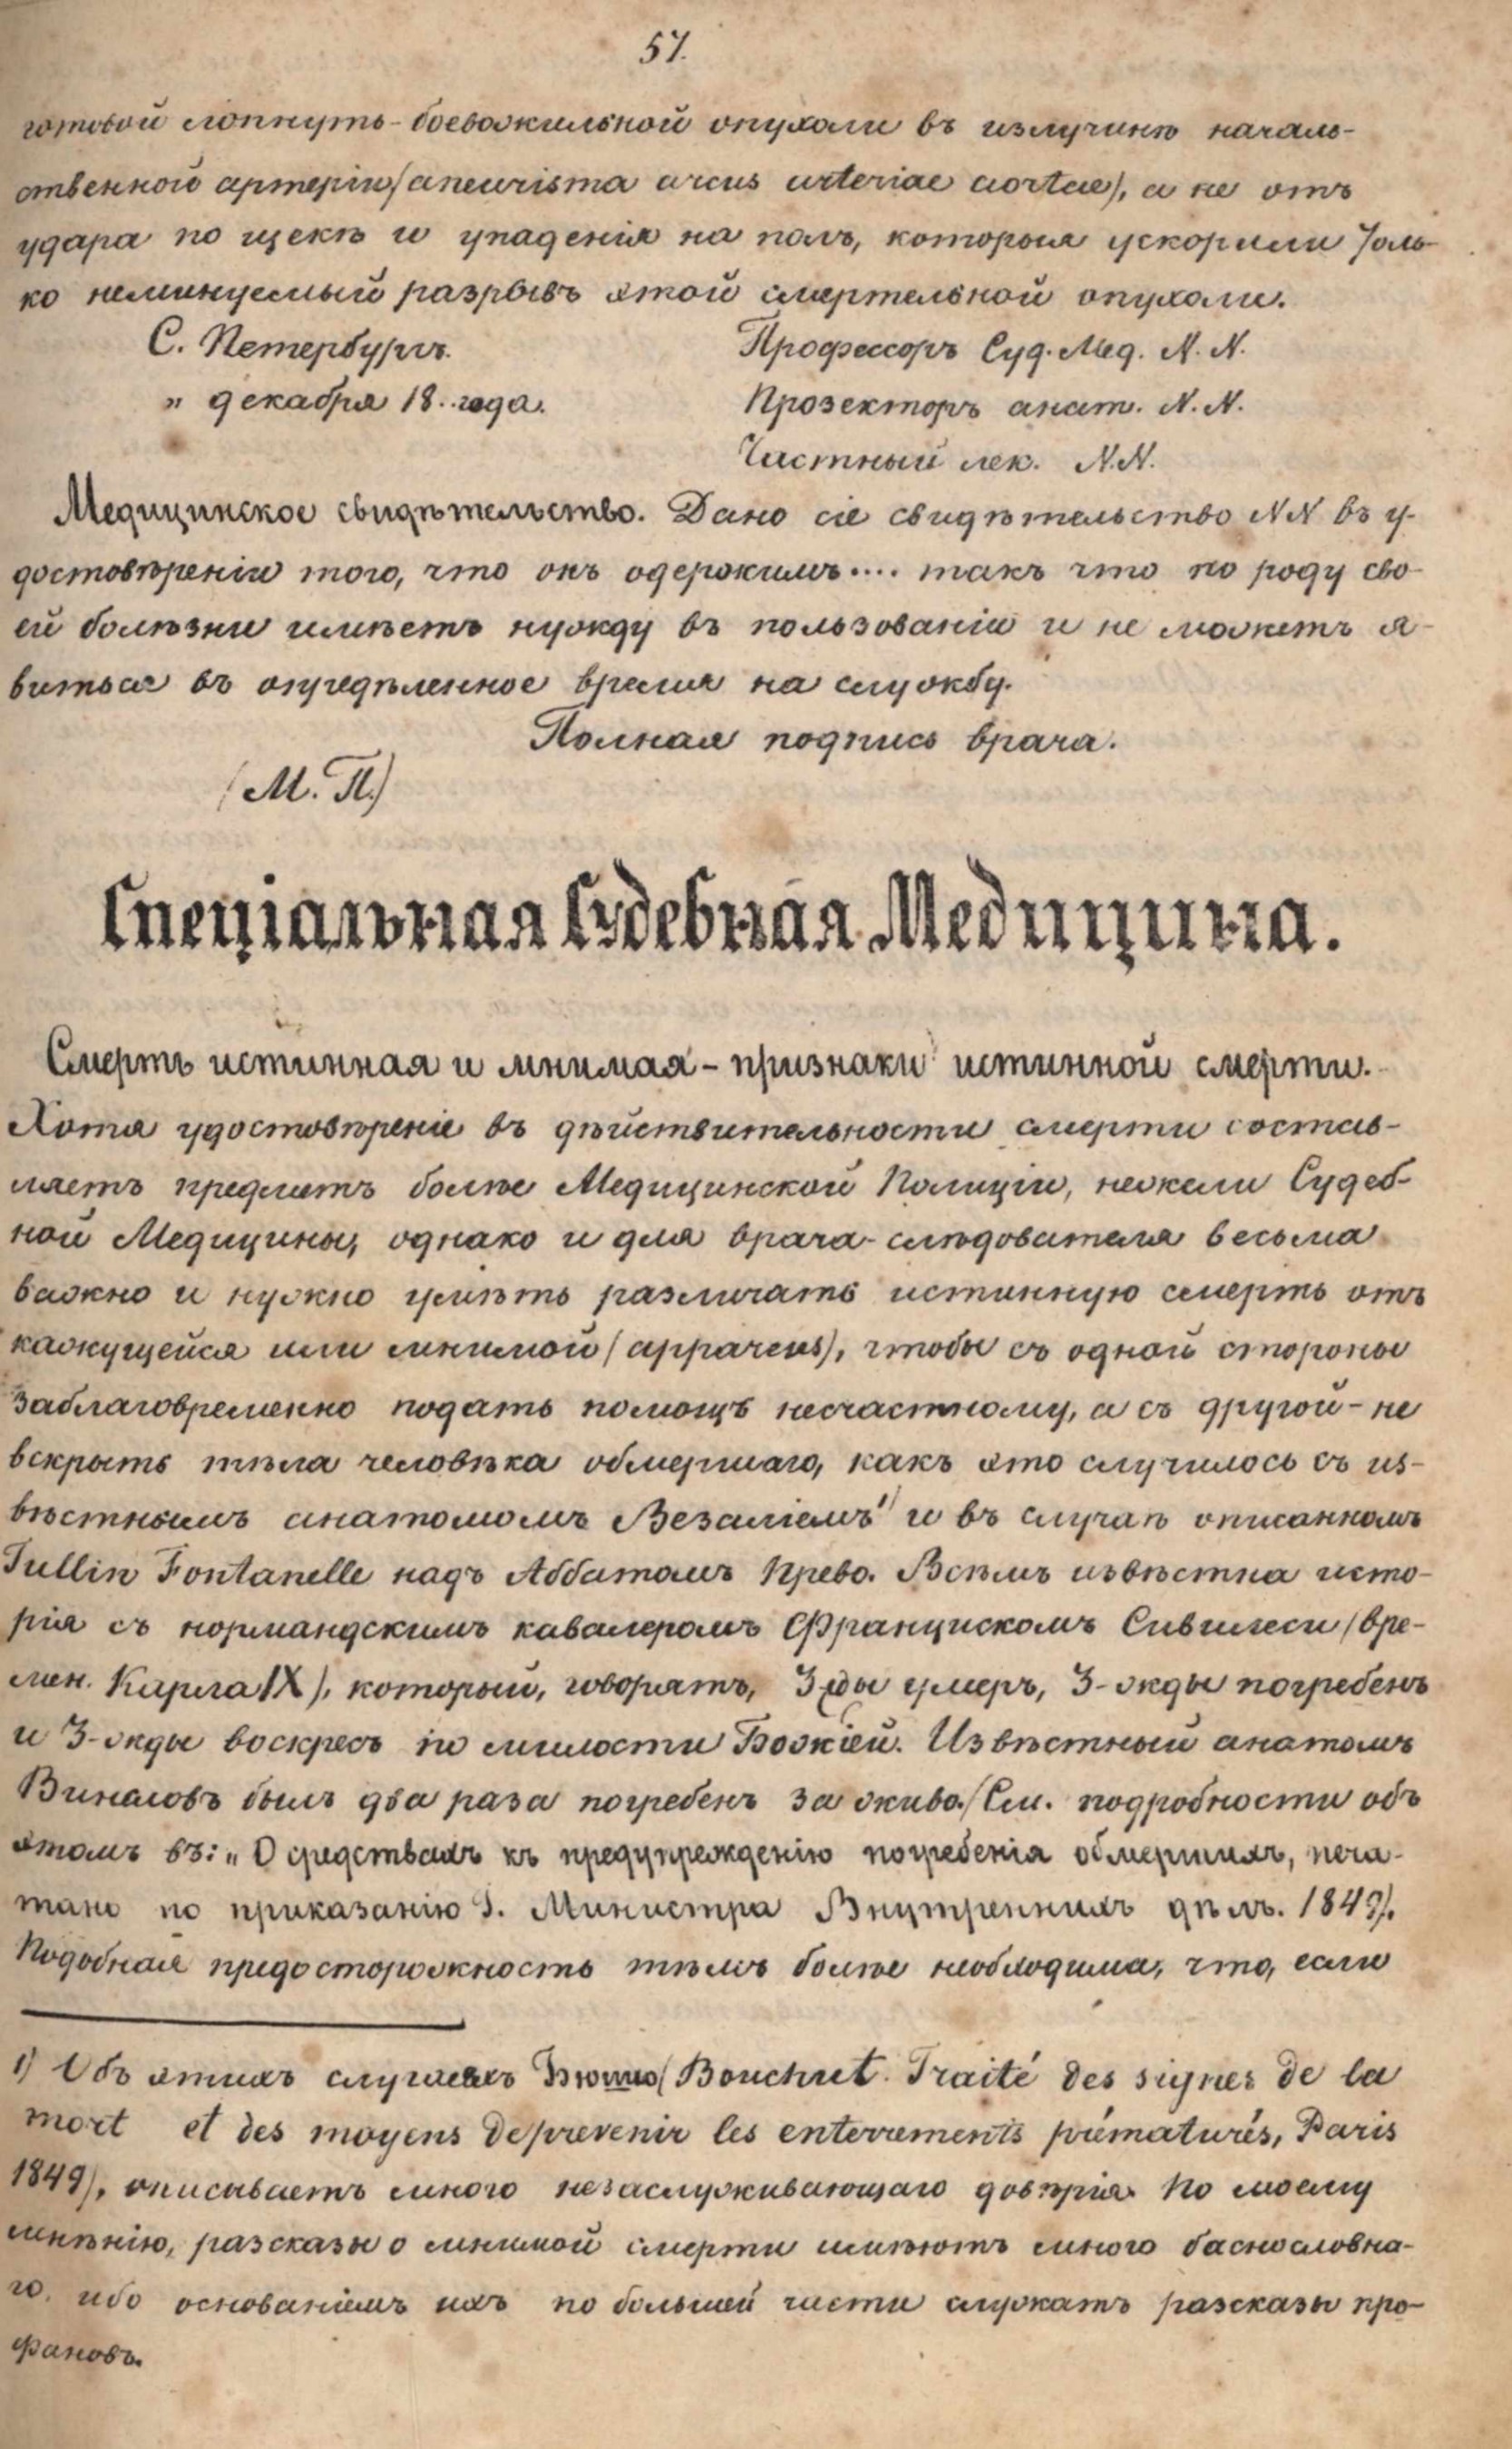 57.
готовой лопнуть-боевожильной опухоли въ излучинѣ началь-
ственной артеріи (aneurisma arcus arteriae aortae), а не отъ
удара по щекѣ и упаденія на полъ, которыя ускорили толь-
ко неминуемый разрывъ этой смертельной опухоли.
С. Петербургъ.
Профессоръ Суд. Мед. N. N.
„ декабря 18.. года.
Прозекторъ анат. N. N.
Частный лек. N.N.
Медицинское свидѣтельство. Дано сіе свидѣтельство NN въ у-
достовѣреніи того, что онъ одержимъ.... такъ что по роду сво-
ей болѣзни имѣетъ нужду въ пользованіи и не можетъ я-
виться въ опредѣленное время на службу.
Полная подпись врача.
(М. П.)
Спеціальная Судебная Медицина.
Смерть истинная и мнимая - признаки истинной смерти.
Хотя удостовѣреніе въ дѣйствительности смерти состав-
ляетъ предметъ болѣе Медицинской Полиціи, нежели Судеб-
ной Медицины, однако и для врача-слѣдователя весьма
важно и нужно умѣть различать истинную смерть отъ
кажущейся или мнимой (apparens), чтобы съ одной стороны
заблаговременно подать помощь несчастному, а съ другой - не
вскрыть тѣла человѣка обмершаго, какъ это случилось съ из-
вѣстнымъ анатомомъ Везаліемъ 1) и въ случаѣ описанномъ
Jullin Fontanelle надъ Аббатомъ Прево. Всѣмъ извѣстна исто-
рія съ нормандскимъ кавалеромъ Францискомъ Сивилеси (вре-
мен. Карла IX), который, говорятъ, 3жды умеръ, 3-жды погребенъ
и 3-жды воскресъ по милости Божіей. Извѣстный анатомъ
Винсловъ былъ два раза погребенъ за живо. (См. подробности объ
этомъ въ: „О средствахъ къ предупрежденію погребенія обмершихъ, печа-
тано по приказанію Г. Министра Внутреннихъ дѣлъ. 1849).
Подобная предосторожность тѣмъ болѣе необходима, что, если
1) Объ этихъ случаяхъ Бюшю (Bouchut. Traité des signes de la
mort et des moyens de prevenir les enterrements prématurés, Paris
1849), описываетъ много незаслуживающаго довѣрія. По моему
мнѣнію, разсказы о мнимой смерти имѣютъ много баснословна-
го, ибо основаніемъ ихъ по большей части служатъ разсказы про-
фановъ.